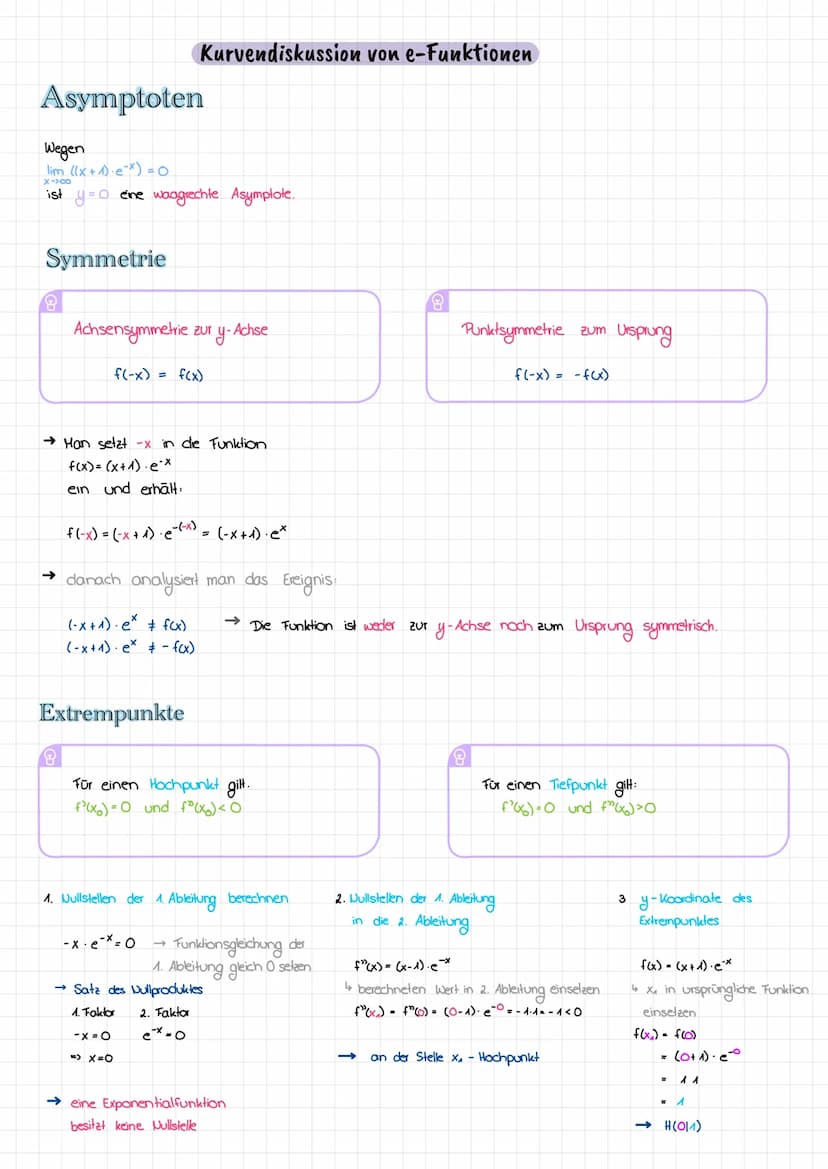 Kurvendiskussion von e-Funktionen
Asymptoten
Wegen
lim ((x+1)·e^-x) = 0
x→∞
ist y=0 eine waagrechte Asymptote.
Symmetrie
Achsensymmetrie zur y-Achse
f(-x) = f(x)
Punktsymmetrie zum Ursprung
f(-x) = -f(x)
→ Man setzt -x in die Funktion
f(x)=(x+1)·e^-x
ein und erhält:
f(-x) = (-x+1)·e^-(-x) = (-x+1)·e^x
→ danach analysiert man das Ereignis:
(-x+1)·e^x ≠ f(x) → Die Funktion ist weder zur y-Achse noch zum Ursprung symmetrisch.
(-x+1)·e^x ≠ -f(x)
Extrempunkte
Für einen Hochpunkt gilt.
f'(x₀)=0 und f"(x₀)<0
Für einen Tiefpunkt gilt:
f'(x₀)=0 und f"(x₀)>0
1. Nullstellen der 1. Ableitung berechnen
-x·e^-x=0 → Funktionsgleichung der
1. Ableitung gleich 0 setzen
→ Satz des Nullproduktes
1. Faktor 2. Faktor
-x=0 e^-x=0
=> x=0
→ eine Exponentialfunktion
besitzt keine Nullstelle
2. Nullstellen der 1. Ableitung
in die 2. Ableitung
f"(x) = (x-1)·e^-x
↳ berechneten Wert in 2. Ableitung einsetzen
f"(x₁) = f"(0) = (0-1)·e^-0 = -1·1 = -1 < 0
→ an der Stelle x₁ - Hochpunkt
3 y-Koordinate des
Extrempunktes
f(x) = (x+1)·e^-x
↳ x₁ in ursprüngliche Funktion
einsetzen
f(x₁) = f(0)
= (0+1)·e^-0
= 1 1
= 1
→ H(0|1)